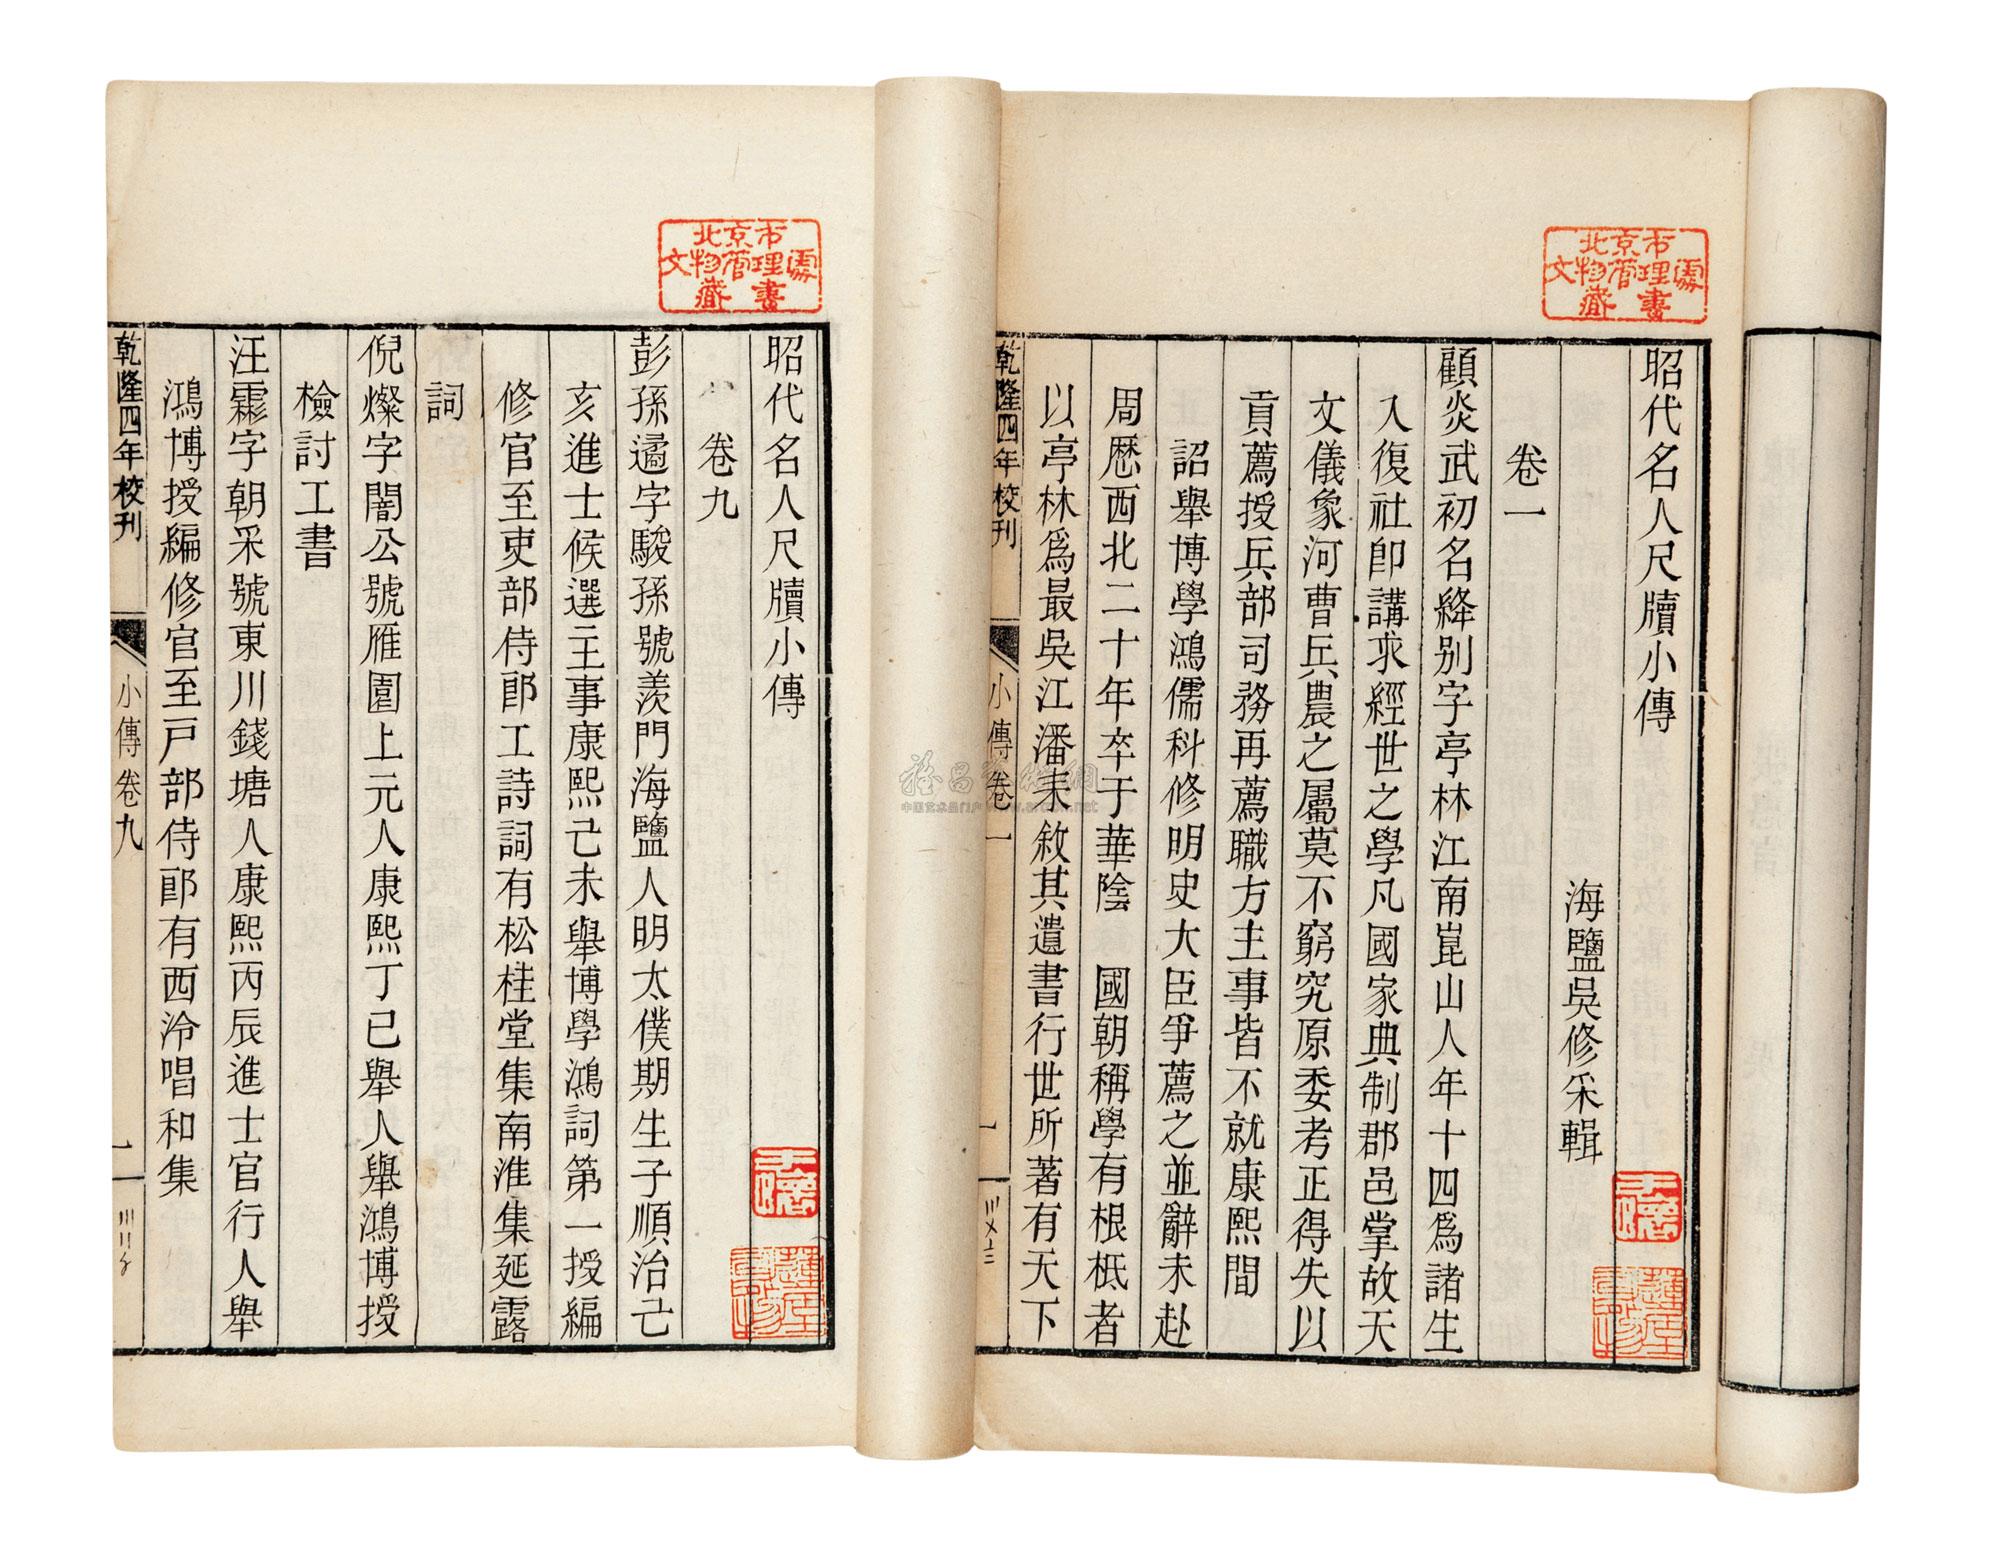 北京市
文物管理處
藏書
昭代名人尺牘小傳
海鹽吳修采輯
卷一
顧炎武初名絳別字亭林江南崑山人年十四爲諸生
入復社卽講求經世之學凡國家典制郡邑掌故天
文儀象河曹兵農之屬莫不窮究原委考正得失以
貢薦授兵部司務再薦職方主事皆不就康熙間
詔舉博學鴻儒科修明史大臣爭薦之並辭未赴
周歷西北二十年卒于華陰 國朝稱學有根柢者
以亭林爲最吳江潘耒敘其遺書行世所著有天下
乾隆四年校刊
小傳卷一
一
北京市
文物管理處
藏書
昭代名人尺牘小傳
卷九
彭孫遹字駿孫號羨門海鹽人明太僕期生子順治己
亥進士候選主事康熙己未舉博學鴻詞第一授編
修官至吏部侍郎工詩詞有松桂堂集南淮集延露
詞
倪燦字闇公號雁園上元人康熙丁巳舉人舉鴻博授
檢討工書
汪霦字朝采號東川錢塘人康熙丙辰進士官行人舉
鴻博授編修官至戸部侍郎有西泠唱和集
乾隆四年校刊
小傳卷九
一